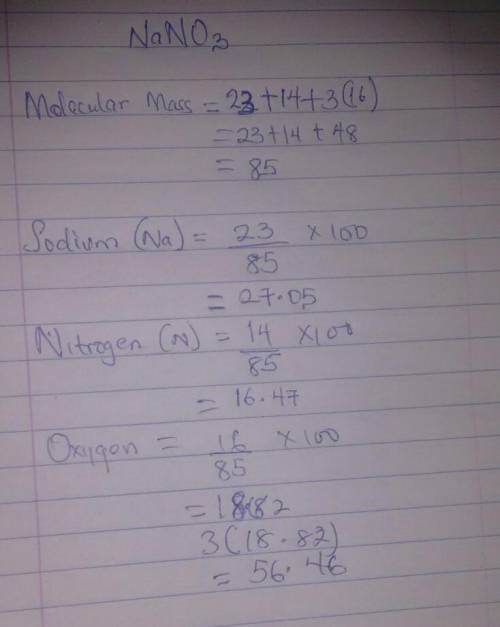 NaNO3
Molecular Mass = 23 + 14 + 3(16)
= 23 + 14 + 48
= 85
Sodium (Na) = 23/85 × 100
= 27.05
Nitrogen (N) = 14/85 × 100
= 16.47
Oxygen = 16/85 × 100
= 18.82
3(18.82)
= 56.46